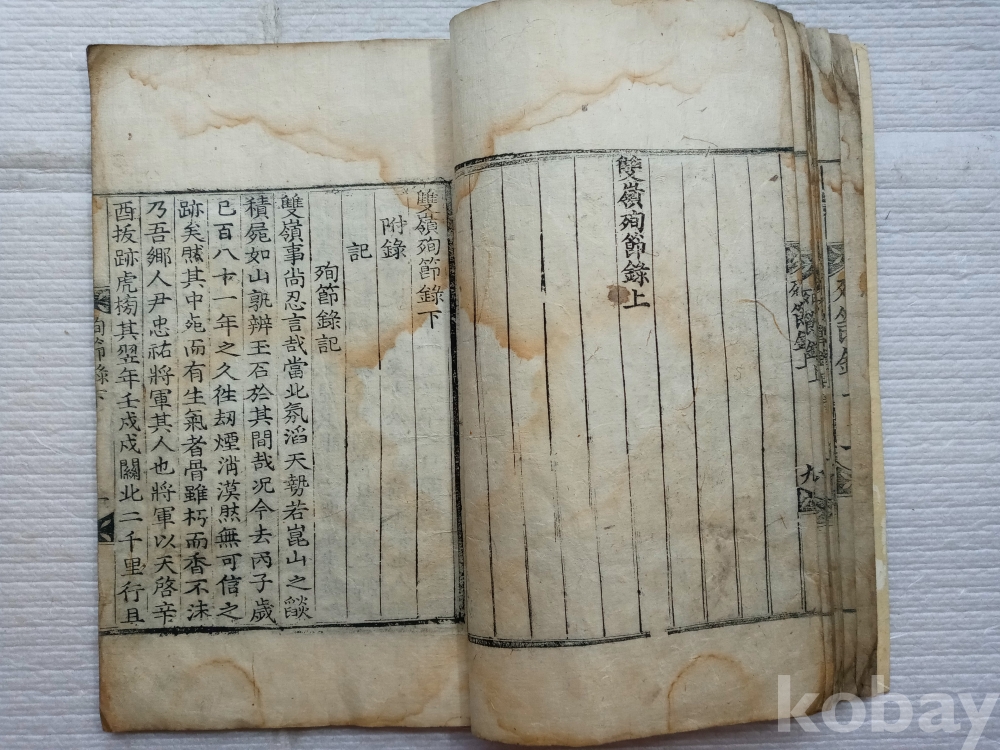 雙嶺殉節錄上
雙嶺殉節錄下
附錄
記
殉節錄記
雙嶺事尙忍言哉當北氛滔天勢若崑山之燄
積屍如山孰辨玉石於其間哉況今去丙子歲
已百八十一年之久徃刼煙消漠然無可信之
跡矣然其中死而有生氣者骨雖朽而香不沫
乃吾鄉人尹忠祐將軍其人也將軍以天啓辛
酉拔跡虎榜其翌年壬戌戍關北二千里行且
殉節錄下
一
九
kobay